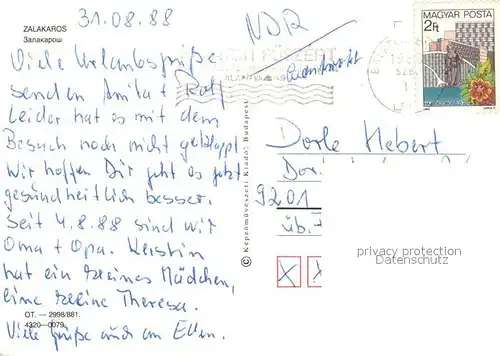 31.08.88
ZALAKAROS
Залакарош
Viele Urlaubsgrüße
senden Anita + Rolf
Leider hat es mit dem
Besuch noch nicht geklappt.
Wir hoffen Dir geht es jetzt
gesundheitlich besser.
Seit 4.8.88 sind wir
Oma + Opa. Kerstin
hat ein kleines Mädchen,
eine kleine Theresa.
Viele Grüße auch an Ellen.
OT. — 2998/881.
4320—0079
© Képzőművészeti Kiadó, Budapest
NDR
MAGYAR POSTA
2Ft
Dorle Hebert
Dor.
9201
üb.
privacy protection
Datenschutz